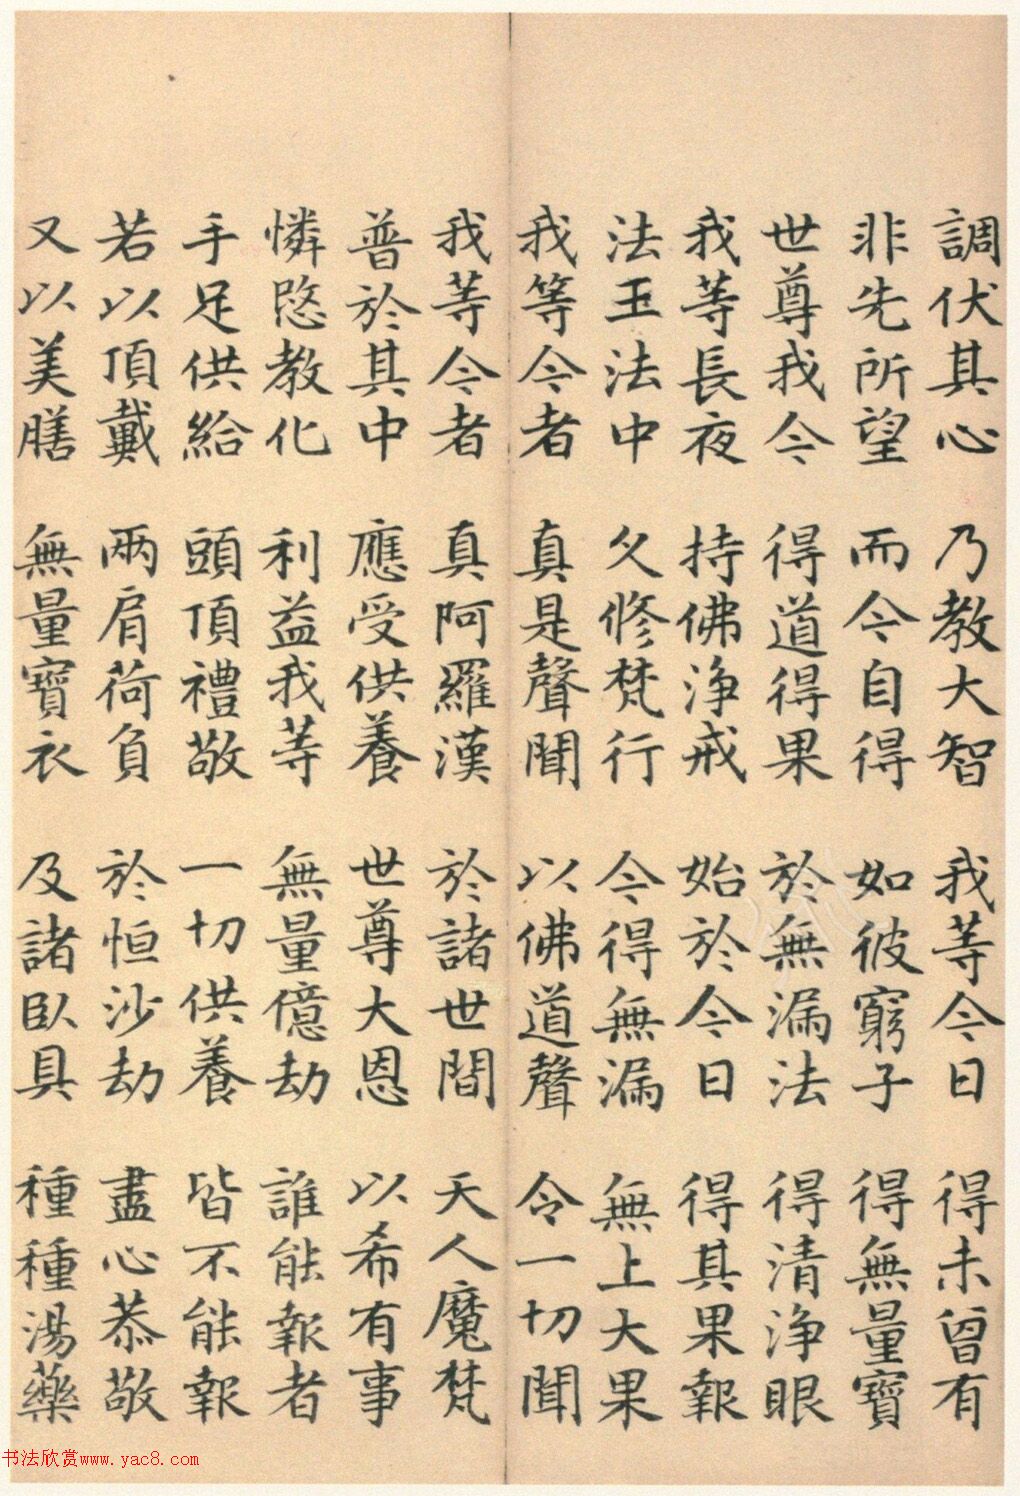 調伏其心 乃教大智 我等今日 得未曾有
非先所望 而今自得 如彼窮子 得無量寶
世尊我今 得道得果 於無漏法 得清淨眼
我等長夜 持佛淨戒 始於今日 得其果報
法王法中 久修梵行 今得無漏 無上大果
我等今者 真是聲聞 以佛道聲 令一切聞
我等今者 真阿羅漢 於諸世間 天人魔梵
普於其中 應受供養 世尊大恩 以希有事
憐愍教化 利益我等 無量億劫 誰能報者
手足供給 頭頂禮敬 一切供養 皆不能報
若以頂戴 兩肩荷負 於恒沙劫 盡心恭敬
又以美膳 無量寶衣 及諸臥具 種種湯藥
书法欣赏www.yac8.com